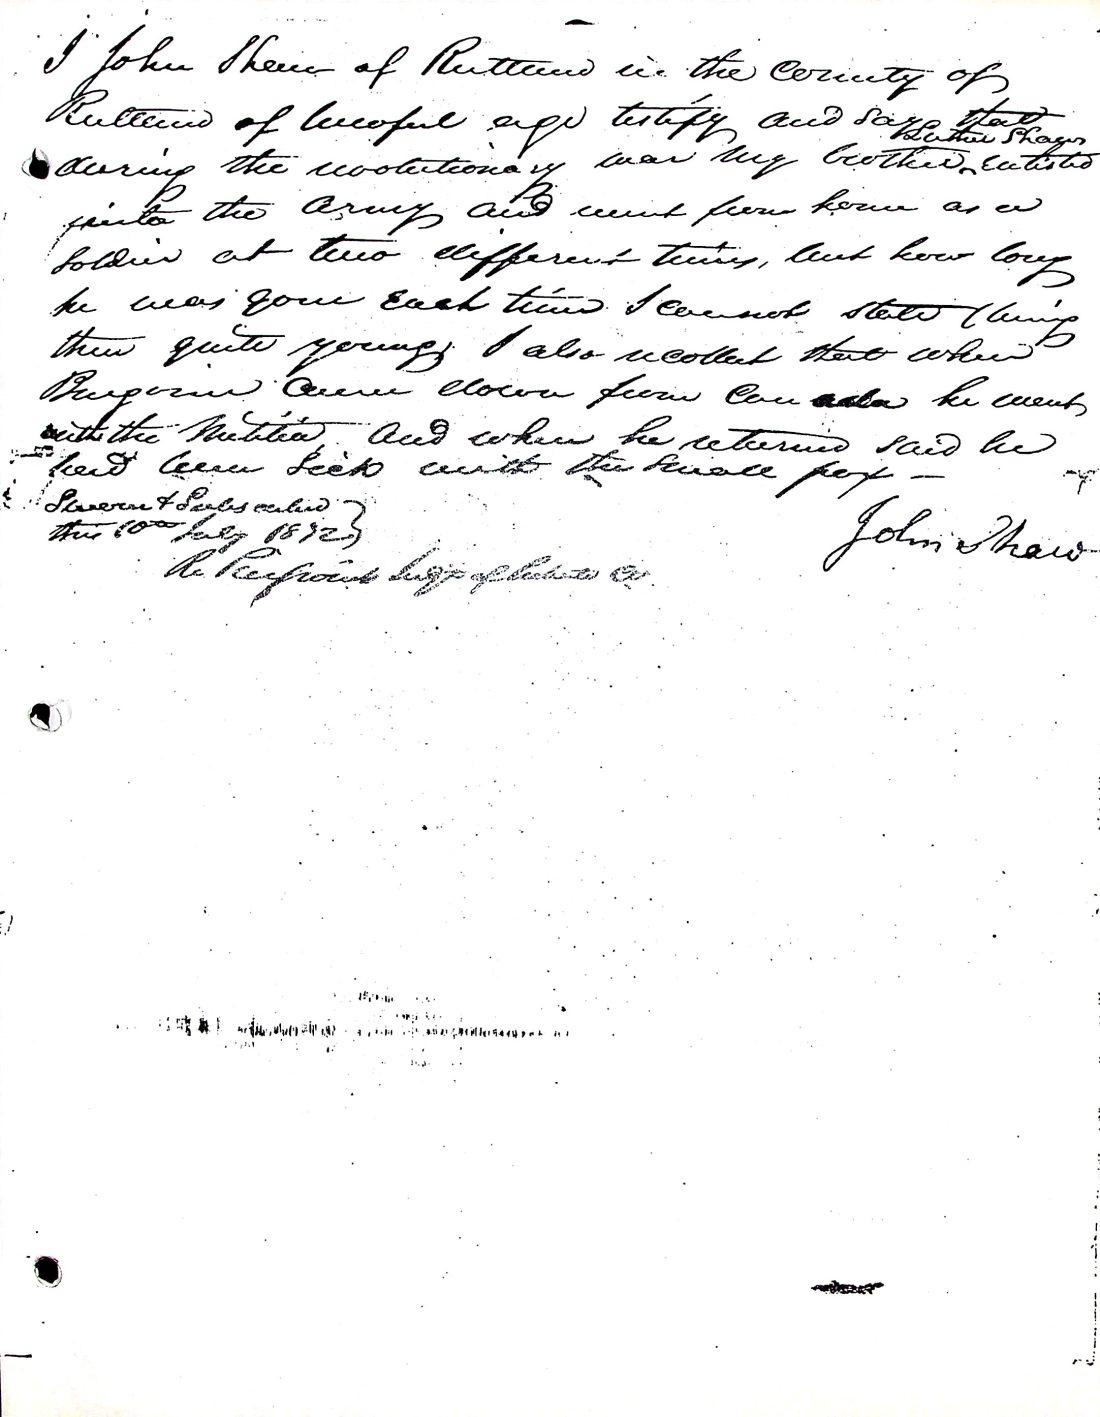 I John Shaw of Rutland in the County of
Rutland of lawful age testify and say that
during the revolutionary war my brother Luther Shaw Enlisted
into the Army and went from home as a
Soldier at two different times, but how long
he was gone Each time I cannot state (being
then quite young) I also recollect that when
Burgoine came down from Canada he went
with the Militia, and when he returned said he
had been Sick with the Small pox —
Sworn & Subscribed
this 10th July 1832
John Shaw
R. Pierpoint Judge of